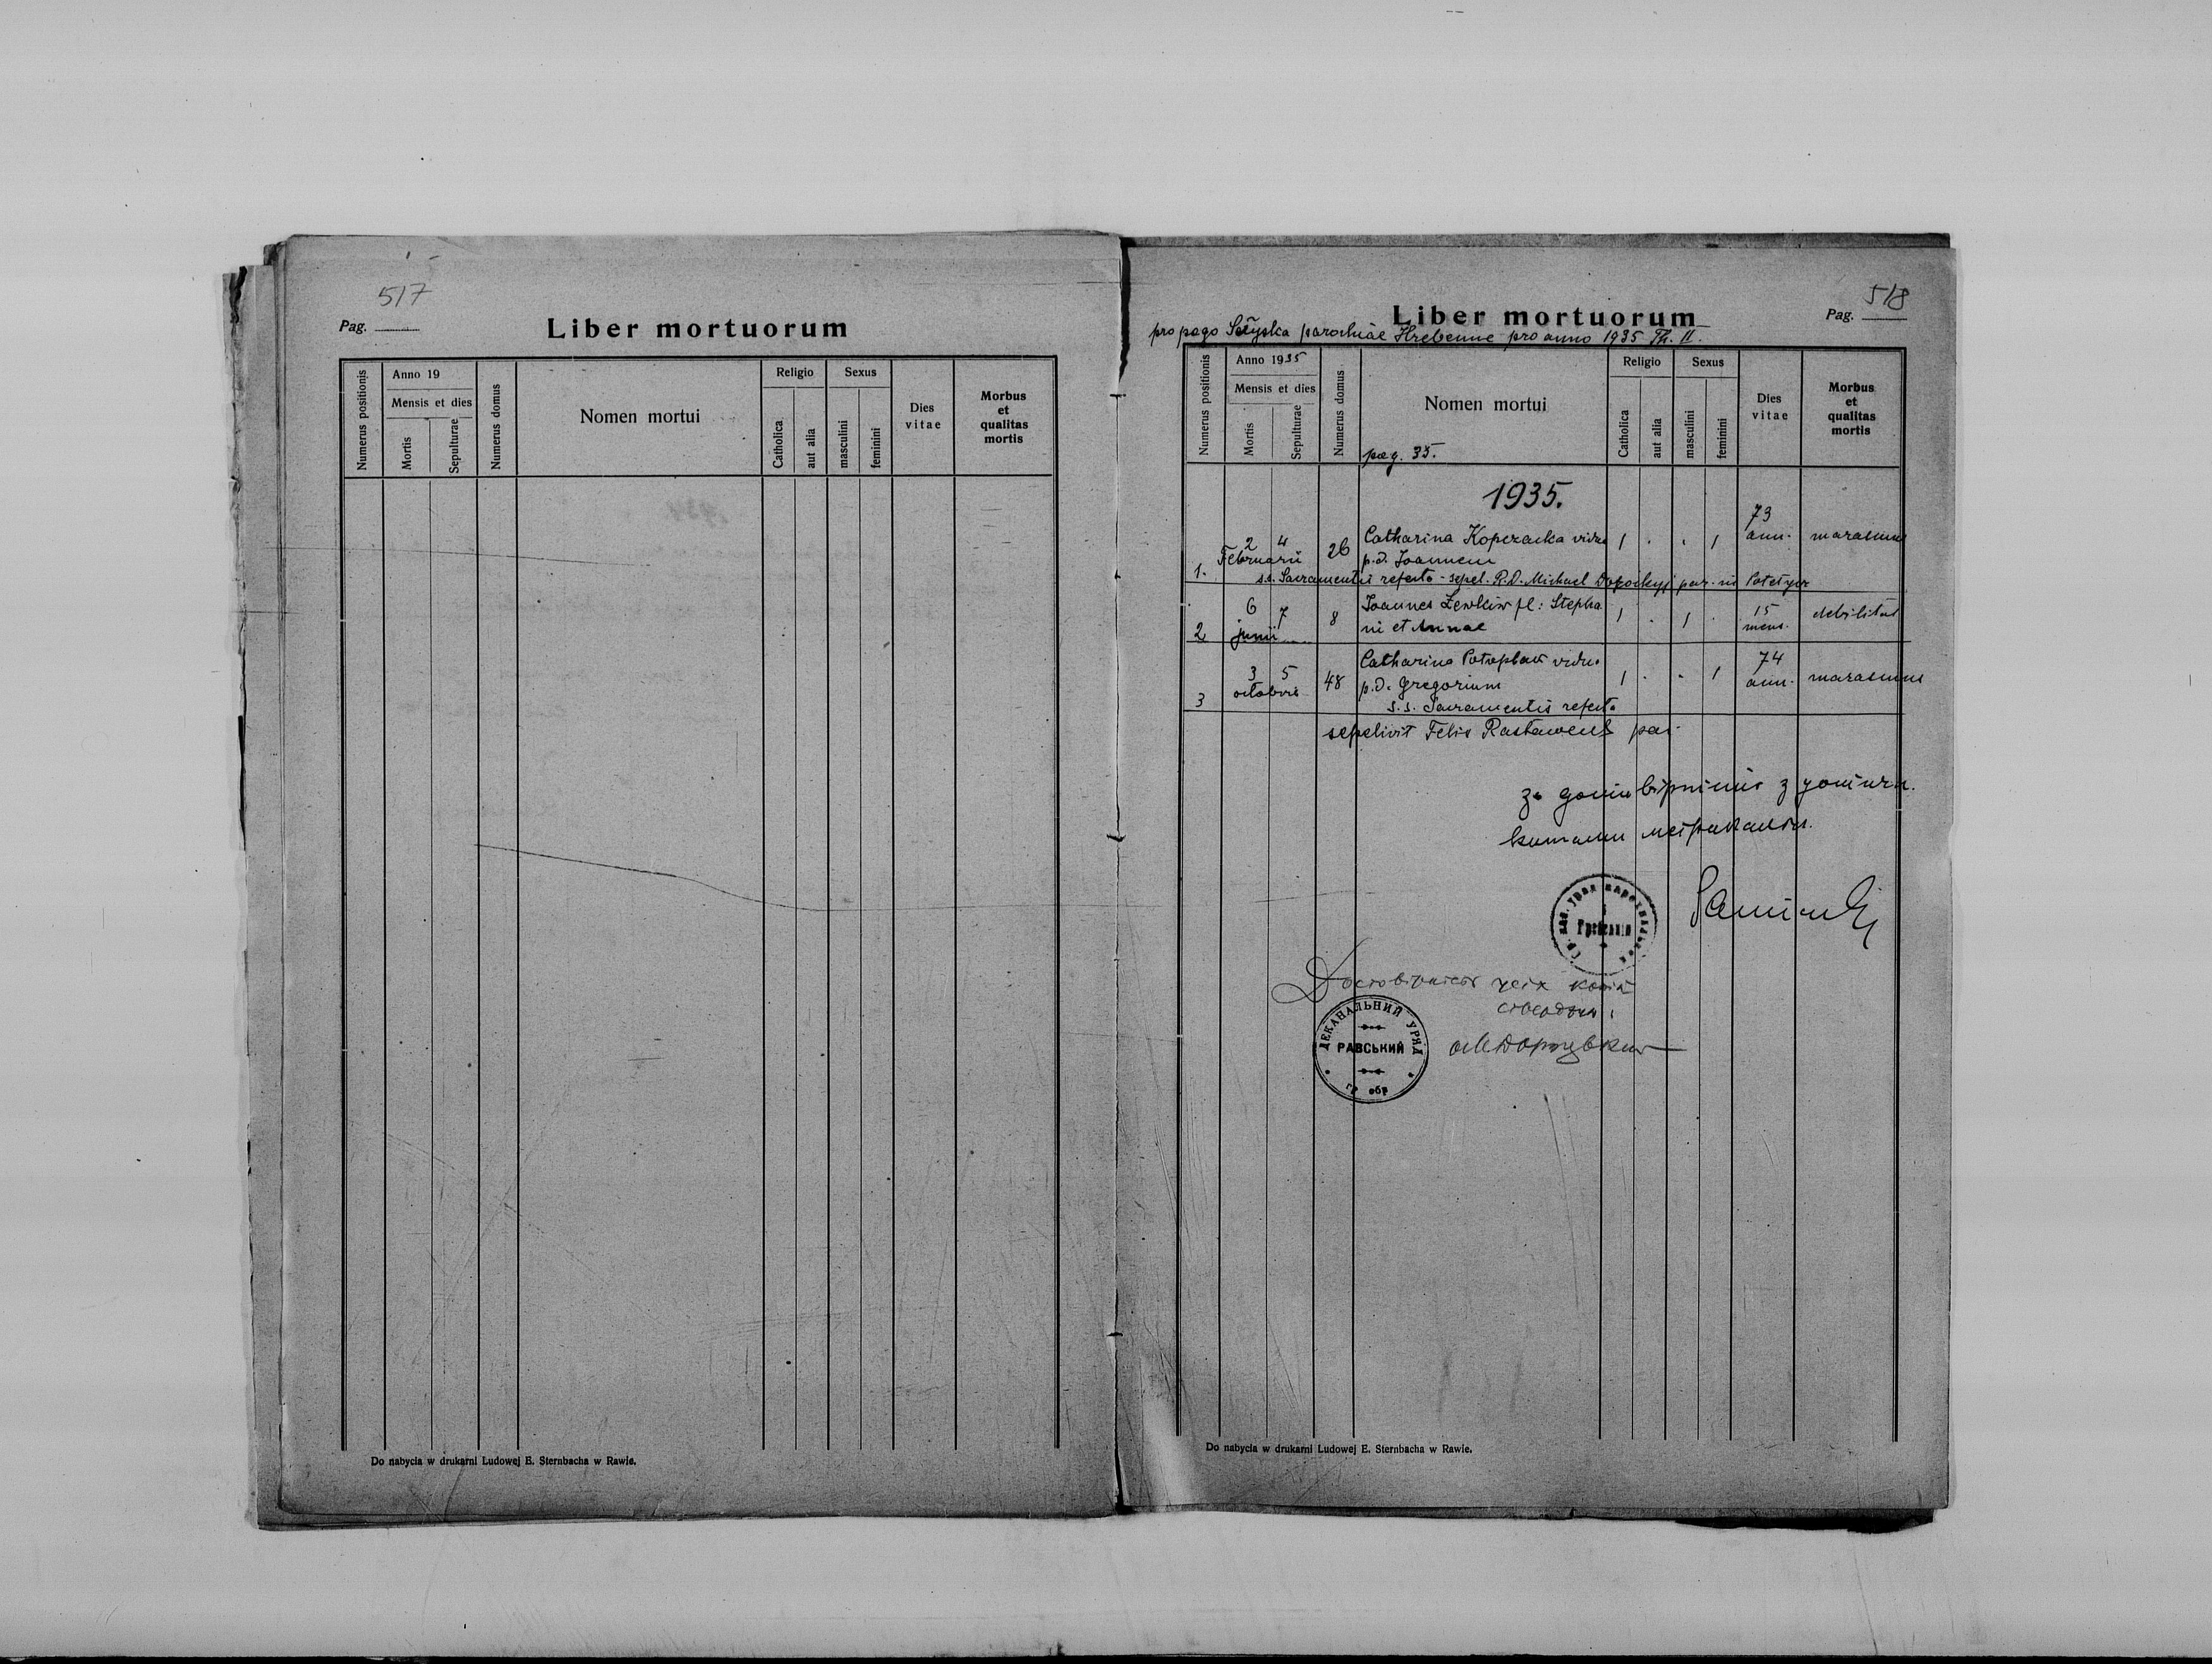 517
Pag.
Liber mortuorum
Numerus positionis
Anno 19
Mensis et dies
Mortis
Sepulturae
Numerus domus
Nomen mortui
Religio
Catholica
aut alia
Sexus
masculini
feminini
Dies vitae
Morbus
et
qualitas
mortis
Do nabycia w drukarni Ludowej E. Sternbacha w Rawie.
518
Pag.
Liber mortuorum
pro pago parochiae Hrebenne pro anno 1935 Th. II.
Numerus positionis
Anno 1935
Mensis et dies
Mortis
Sepulturae
Numerus domus
Nomen mortui
pag. 35.
Religio
Catholica
aut alia
Sexus
masculini
feminini
Dies
vitae
Morbus
et
qualitas
mortis
1935.
1. 2 4 Februarii 26 Catharina Kopczacka vidua 1 . . 1 73 ann. marasmus
p.d. Joannem
s.s. Sacramentis referta - sepel. R.D. Michael par. in
2 6 7 junii 8 Joannes Lewkiw fl: Stepha 1 . 1 . 15 mens. debilitas
ni et Annae
3 3 5 octobris 48 Catharina vidua 1 . . 1 74 ann. marasmus
p.d. Gregorium
s.s. Sacramentis referta
sepelivit Felix par.
за з
метрикальн.
Достовірність сеїх копій
ДЕКАНАЛЬНИЙ УРЯД
РАВСЬКИЙ
гр обр
Do nabycia w drukarni Ludowej E. Sternbacha w Rawie.